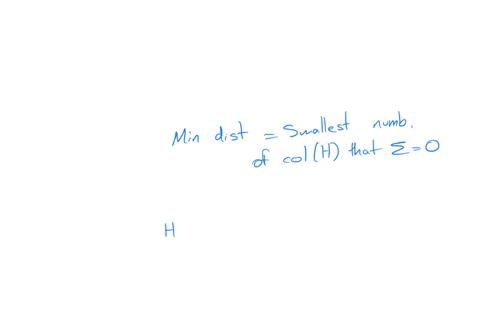 Min dist = Smallest numb.
of col(H) that Σ=0
H